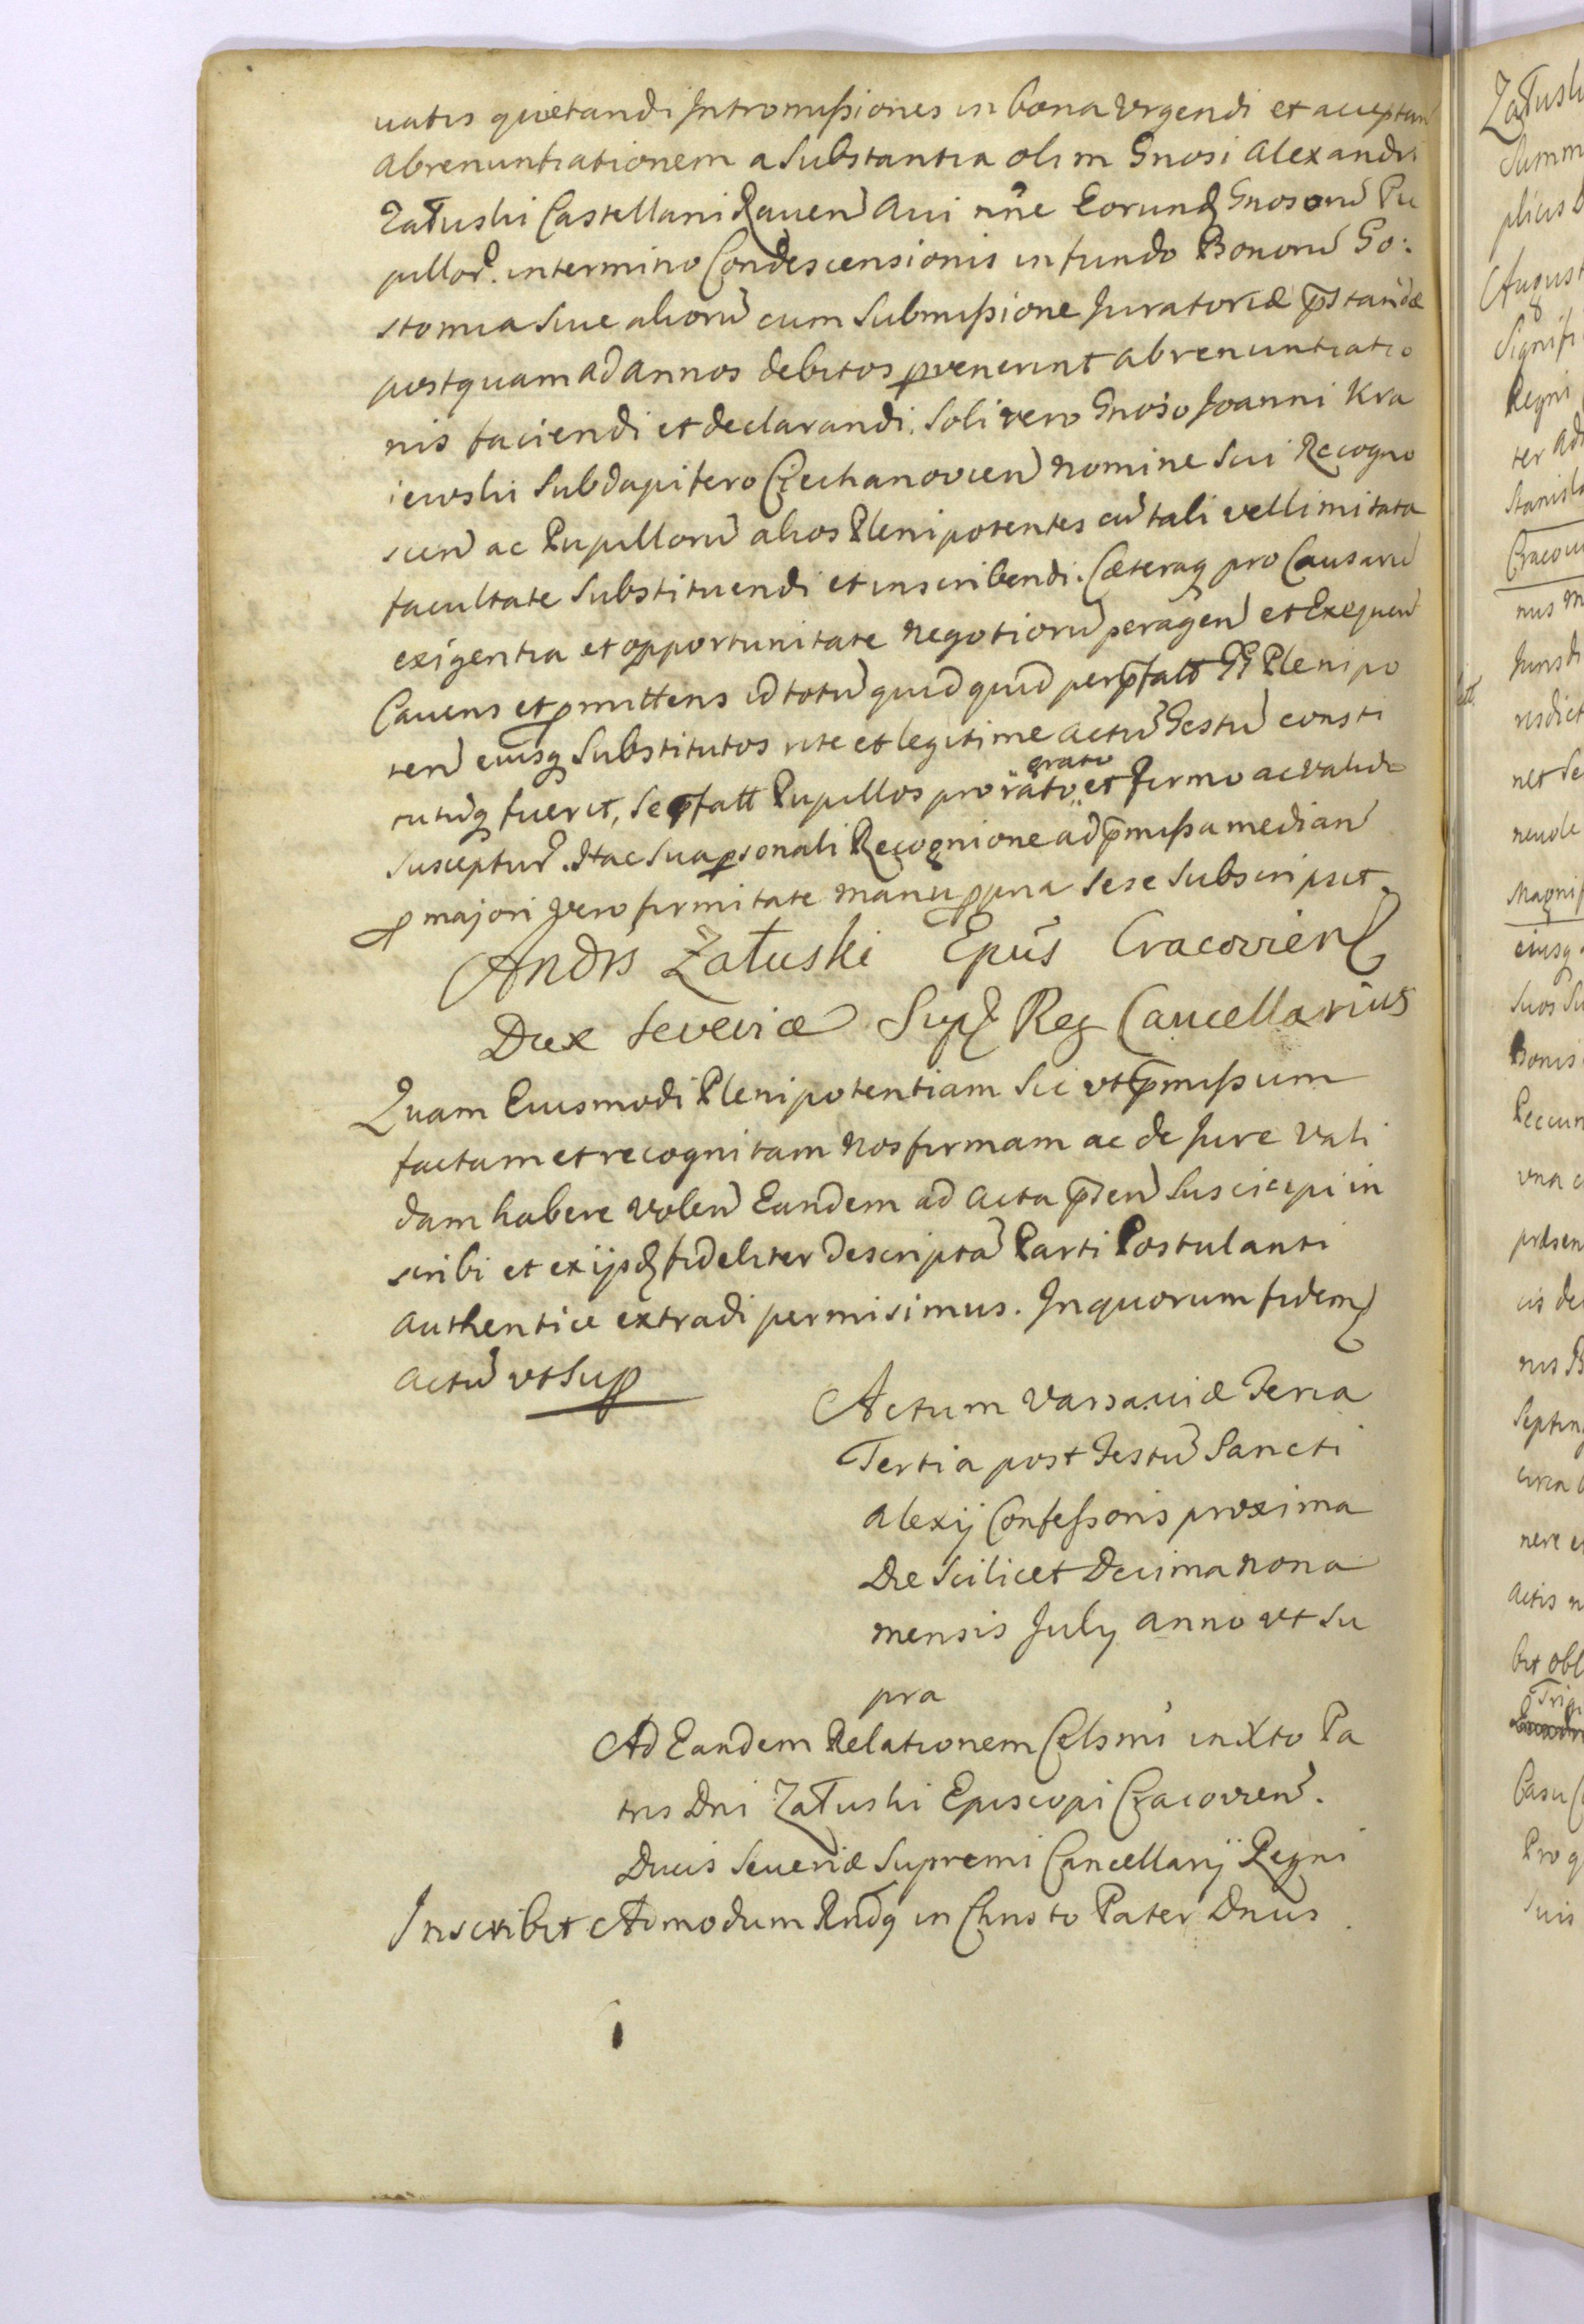 uatis quietandi Intromissiones in bona Vrgendi et acceptan
abrenuntiationem a Substantia olim Gnosi Alexandri
Załuski Castellani Rauen Aui nne Eorund Gnosorū Pu
pillor. in termino Condescensionis in fundo Bonorū Go:
stomia siue aliorū cum Submissione Juratoriæ p̄standæ
postquam ad annos debitos pvenerint abrenuntiatio
nis faciendi et declarandi. Soli vero Gnoso Joanni Kra
iewski Subdapifero Ciechanovien nomine Sui Recogno
scen ac Pupillorū alios Plenipotentes cū tali vel limitata
facultate Substituendi et inscribendi. Cæteraq pro Causarū
exigentia et opportunitate negotiorū peragen et Exequen
Cauens et pmittens id totū quidquid per p̄fatt GG Plenipo
ten eiusq Substitutos rite et legitime actū Gestū consti
tutūq fuerit, se p̄fatt Pupillos pro rato et firmo ac valido
grato
Susceptur. Hac Sua psonali Recognione ad p̄missa median
p majori vero firmitate manu ppria sese Subscripsit.
Andrs Załuski Epūs Cracovien
Dux Severiæ Sup Reg Cancellarius
Quam Eiusmodi Plenipotentiam Sic vt p̄missum
factam et recognitam Nos firmam ac de Jure Vali
dam habere volen Eandem ad acta p̄sen Suscicepi in
scribi et ex ijsd fideliter descriptā Parti Postulanti
authentice extradi permisimus. In quorum fidem
actū vt Sup
Actum Varsauiæ Feria
Tertia post Festū Sancti
Alexij Confessoris proxima
Die Scilicet Decima nona
mensis July anno vt Su
pra
Ad Eandem Relationem Celsmi in Xto Pa
tris Dni Załuski Episcopi Cracovien.
Ducis Seueriæ Supremi Cancellarij Regni
Inscribit Admodum Rndq in Christo Pater Dnus